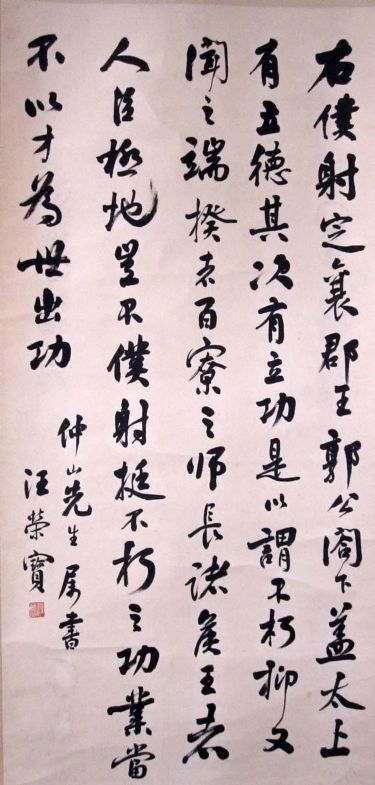 右僕射定襄郡王郭公閣下蓋太上
有立德其次有立功是以謂不朽抑又
聞之端揆者百寮之師長諸侯王者
人臣極地豈不僕射挺不朽之功業當
不以才為世出功
仲山先生属書
汪榮寶